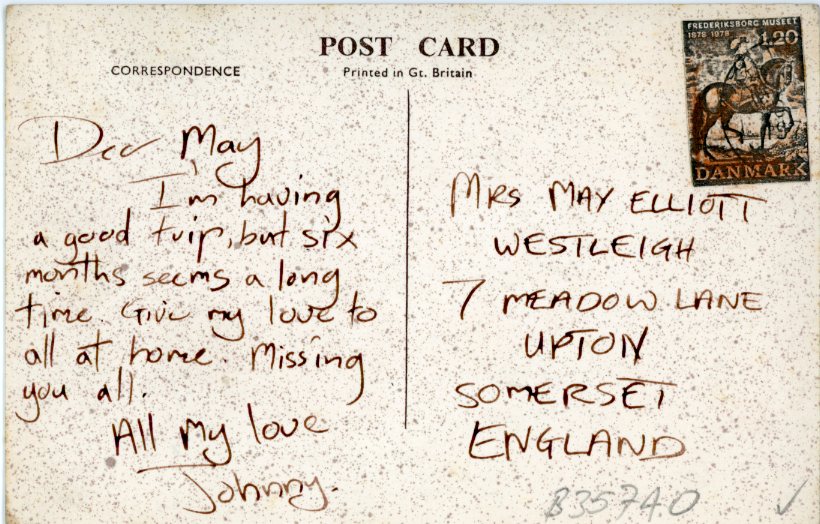 POST CARD
CORRESPONDENCE
Printed in Gt. Britain
FREDERIKSBORG MUSEET
1878 1978
1.20
DANMARK
Dear May
I'm having
a good trip, but six
months seems a long
time. Give my love to
all at home. Missing
you all.
All my love
Johnny.
MRS MAY ELLIOTT
WESTLEIGH
7 MEADOW LANE
UPTON
SOMERSET
ENGLAND
835740